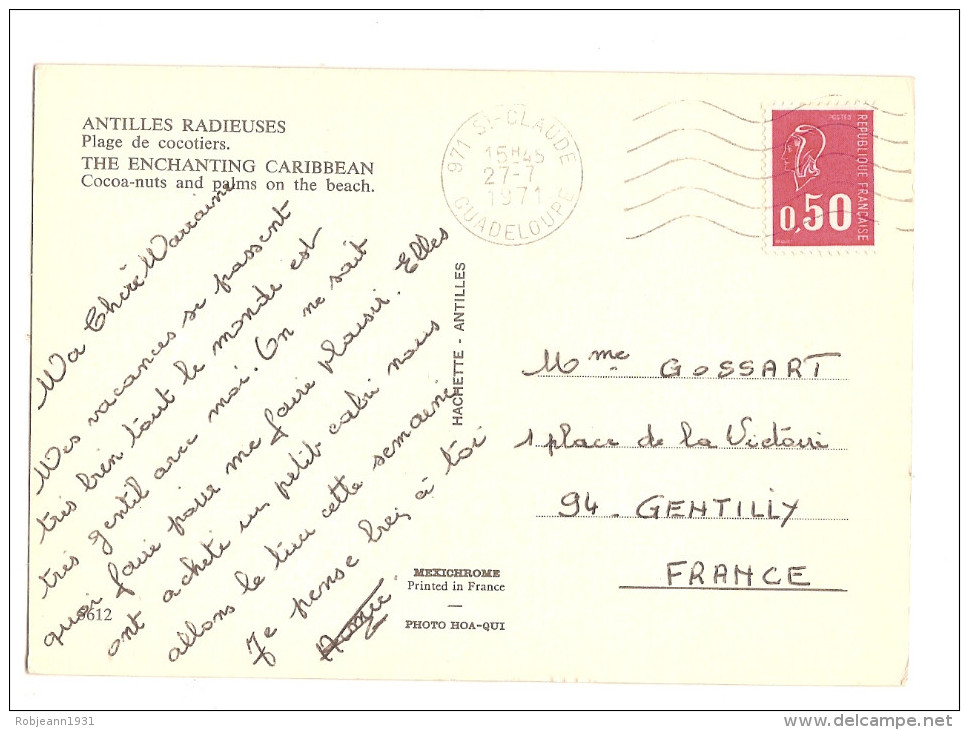 ANTILLES RADIEUSES
Plage de cocotiers.
THE ENCHANTING CARIBBEAN
Cocoa-nuts and palms on the beach.
971 St-CLAUDE
15H45
27-7
1971
GUADELOUPE
POSTES
REPUBLIQUE FRANÇAISE
0,50
Ma Chère Marraine
Mes vacances se passent
très bien tout le monde est
très gentil avec moi. On ne sait
quoi faire pour me faire plaisir. Elles
ont acheté un petit cabri nous
allons le tuer cette semaine
Je pense bcq à toi
HACHETTE - ANTILLES
Mme GOSSART
1 place de la Victoire
94 - GENTILLY
FRANCE
MEXICHROME
Printed in France
PHOTO HOA-QUI
612
Robjeann1931
www.delcampe.net